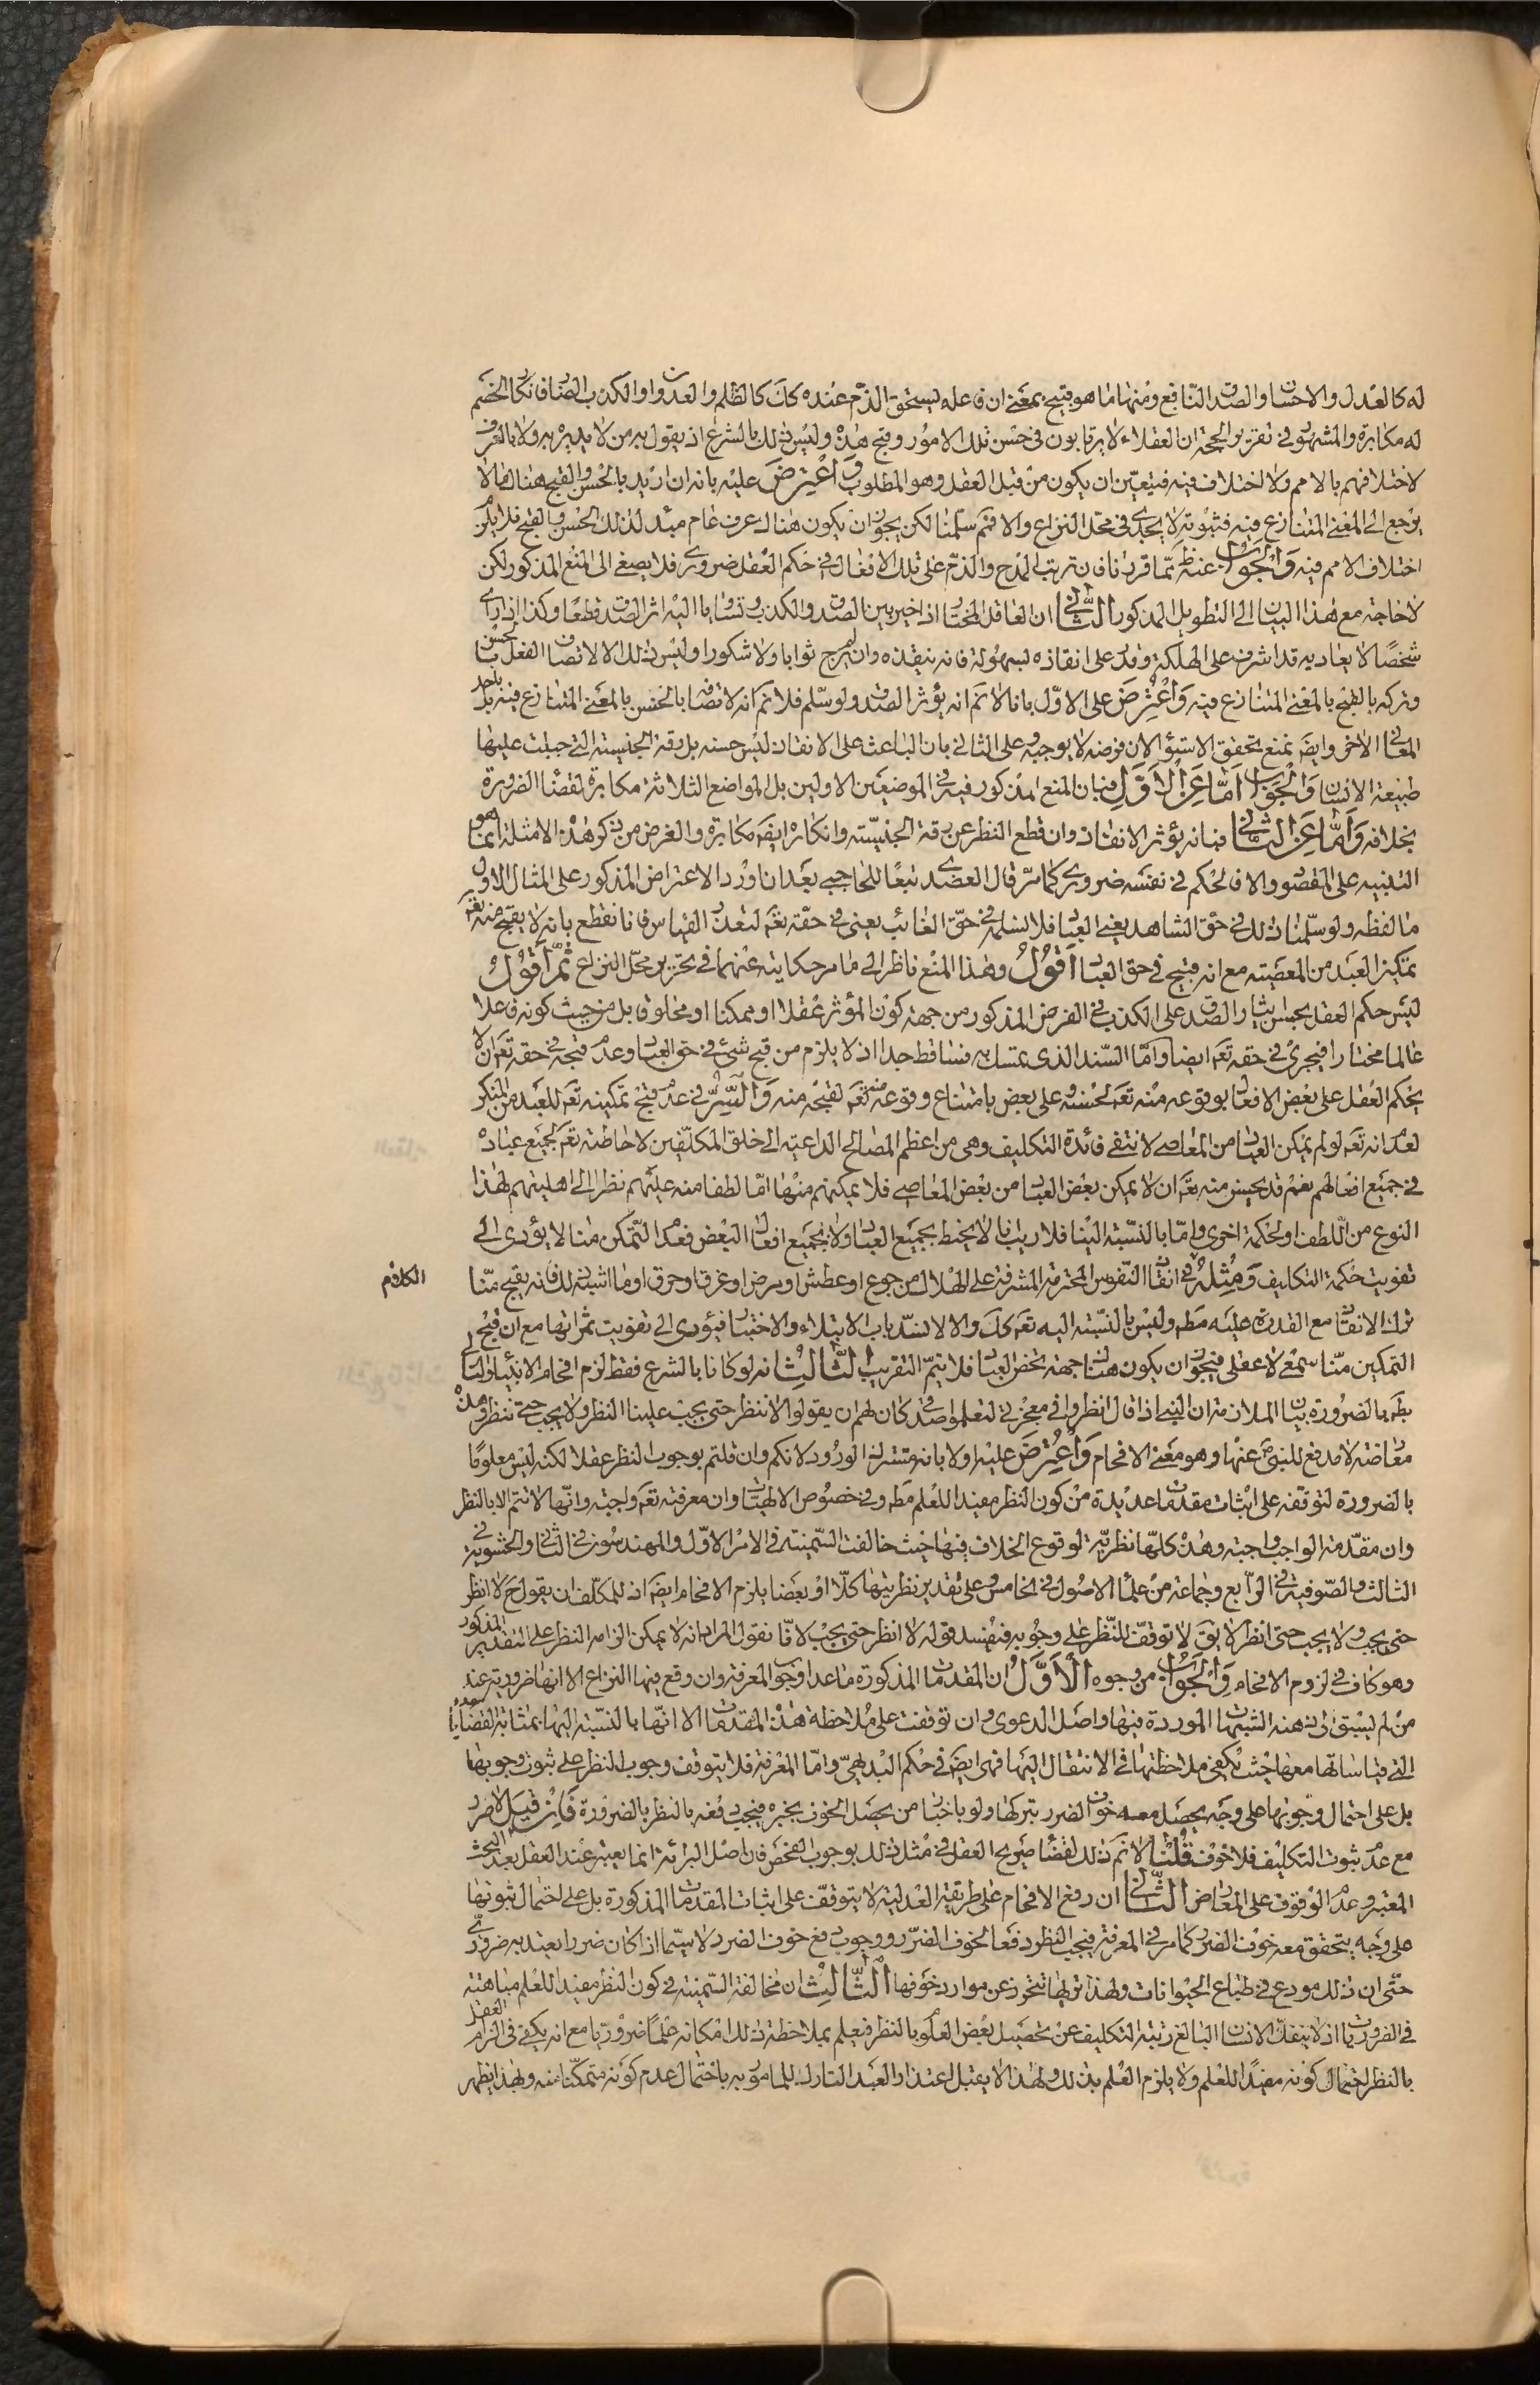 له كالعدل والاحسان والصدق النافع ومنها ما هو قبيح بمعنى ان فاعله يستحق الذم عنده كك كالظلم والعدوان والكذب الضار فانكار الخصم
له مكابرة والمشهور في تقرير الحجة ان العقلاء لا يرتابون في حسن تلك الامور وقبح هذه وليس ذلك بالشرع اذ يقول به من لا يدين به ولا بالعرف
لاختلافهم بالامم ولا اختلاف فيه فيتعين ان يكون من قبل العقل وهو المطلوب واعترض عليه بانه ان اريد بالحسن والقبح هنا ما لا
يرجع الى المعنى المتنازع فيه فثبوته لا يجدى في محل النزاع والا فثم سلمنا لكن يجوز ان يكون هناك عرف عام مبدء لذلك الحسن والقبح فلا يلزم
اختلاف الامم فيه والجواب عنه ظ مما قررنا فان ترتب المدح والذم على تلك الافعال في حكم العقل ضرورى فلا يصغى الى المنع المذكور لكن
لا حاجة مع هذا البيان الى التطويل المذكور الثانى ان العاقل المختار اذا خير بين الصدق والكذب وتساويا اليه اثر الصدق قطعا وكذا اذا راى
شخصا لا يعاديه قد اشرف على الهلكة وقدر على انقاذه بسهولة فانه ينقذه وان لم يرج ثوابا ولا شكورا وليس ذلك الا لاتصاف الفعل بالحسن
وتركه بالقبح بالمعنى المتنازع فيه واعترض على الاول بانا لا نم انه يؤثر الصدق ولو سلم فلا نم انه لاتصافه بالحسن بالمعنى المتنازع فيه بل باحد
المعانى الاخر وايضا نمنع تحقق الاستواء لان فرضه لا يوجبه وعلى الثانى بان الباعث على الانقاذ ليس حسنه بل رقة الجنسية التى جبلت عليها
طبيعة الانسان والجواب اما عن الاول فبان المنع المذكور فيه في الموضعين الاولين بل المواضع الثلاثة مكابرة لقضاء الضرورة
بخلافه واما عن الثانى فبانه يؤثر الانقاذ وان قطع النظر عن رقة الجنسية وانكاره ايضا مكابرة والغرض من ذكر هذه الامثلة انما هو
التنبيه على المقصود والا فالحكم في نفسه ضرورى كما مر قال العضدى تبعا للحاجبى بعد ان اورد الاعتراض المذكور على المثال الاول
ما لفظه ولو سلمنا ذلك في حق الشاهد يعنى العباد فلا نسلمه في حق الغائب يعنى في حقه تعم لتعذر القياس فانا نقطع بانه لا يقبح منه تعم
تمكين العبد من المعصية مع انه قبيح في حق العباد اقول وهذا المنع ناظر الى ما مر حكايته عنهما في تحرير محل النزاع ثم اقول
ليس حكم العقل بحسن ايثار الصدق على الكذب في الفرض المذكور من جهة كون المؤثر عقلا او ممكنا او مخلوقا بل من حيث كونه فاعلا
عالما مختارا فيجرى في حقه تعم ايضا واما السند الذى تمسك به فساقط جدا اذ لا يلزم من قبح شئ في حق العباد وعدم قبحه في حقه تعم ان لا
يحكم العقل على بعض الافعال بوقوعه منه تعم لحسنه وعلى بعض بامتناع وقوعه منه تعم لقبحه منه والسر في عدم قبح تمكينه تعم للعبد من المنكر
لعله انه تعم لو لم يمكن العباد من المعاصى لانتفى فائدة التكليف وهى من اعظم المصالح الداعية الى خلق المكلفين لاحاطته تعم بجميع عباده
في جميع افعالهم نعم قد يحسن منه تعم ان لا يمكن بعض العباد من بعض المعاصى فلا يمكنهم منها اما لطفا منه عليهم نظرا الى اهليتهم لهذا
النوع من اللطف او لحكمة اخرى واما بالنسبة الينا فلا ريب انا لا نحيط بجميع العباد ولا بجميع افعال البعض فعدم التمكن منا لا يؤدى الى
تفويت حكمة التكليف ومثله في انقاذ النفوس المحترمة المشرفة على الهلاك من جوع او عطش او مرض او غرق او حرق او ما اشبه ذلك فانه يقبح منا
ترك الانقاذ مع القدرة عليه مط وليس بالنسبة اليه تعم كك والا لانسد باب الابتلاء والاختبار فيؤدى الى تفويت ثمراتها مع ان قبح
التمكين منا سمعى لا عقلى فيجوز ان يكون هناك جهة تخص العباد فلا يتم التقريب الثالث انه لو كانا بالشرع فقط لزم افحام الانبياء والتالى
بط بالضرورة بيان الملازمة ان النبى اذا قال انظروا في معجزتى لتعلموا صدقى كان لهم ان يقولوا لا ننظر حتى يجب علينا النظر ولا يجب حتى ننظر وهذه
معارضة لا مدفع للنبى ص عنها وهو معنى الافحام واعترض عليه اولا بانه مشترك الورود لانكم وان قلتم بوجوب النظر عقلا لكنه ليس معلوما
بالضرورة لتوقفه على اثبات مقدمات عديدة من كون النظر مفيدا للعلم مط وفي خصوص الالهيات وان معرفته تعم واجبة وانها لا تتم الا بالنظر
وان مقدمة الواجب واجبة وهذه كلها نظرية لوقوع الخلاف فيها حيث خالفت السمنية في الامر الاول والمهندسون في الثانى والحشوية في
الثالث والصوفية في الرابع وجماعة من علماء الاصول في الخامس وعلى تقدير نظريتها كلا او بعضا يلزم الافحام ايضا اذ للمكلف ان يقول ح لا انظر
حتى يجب ولا يجب حتى انظر لا يق لا توقف للنظر على وجوبه فيفسد قوله لا انظر حتى يجب لانا نقول المراد انه لا يمكن الزامه النظر على التقدير المذكور
وهو كاف في لزوم الافحام والجواب من وجوه الاول ان المقدمات المذكورة ما عدا وجوب المعرفة وان وقع فيها النزاع الا انها ضرورية عند
من لم يسبق الى ذهنه الشبهات الموردة فيها واصل الدعوى وان توقفت على ملاحظة هذه المقدمات الا انها بالنسبة اليها بمثابة القضايا
التى قياساتها معها حيث يكفى ملاحظتها في الانتقال اليها فهى ايضا في حكم البديهى واما المعرفة فلا يتوقف وجوب النظر على ثبوت وجوبها
بل على احتمال وجوبها على وجه يحصل معه خوف الضرر بتركها ولو باخبار من يحصل الخوف بخبره فيجب دفعه بالنظر بالضرورة فان قيل لا ضرر
مع عدم ثبوت التكليف فلا خوف قلنا لا نم ذلك لقضاء صريح العقل في مثل ذلك بوجوب الفحص فان اصل البرائة انما يعتبر عند العقل بعد البحث
المعتبر وعدم الوقوف على المعارض الثانى ان دفع الافحام على طريقة العدلية لا يتوقف على اثبات المقدمات المذكورة بل على احتمال ثبوتها
على وجه يتحقق معه خوف الضرر كما مر في المعرفة فيجب النظر دفعا لخوف الضرر ووجوب دفع خوف الضرر لا سيما اذا كان ضررا يعتد به ضرورى
حتى ان ذلك مودع في طباع الحيوانات ولهذا تريها تتحرز عن موارد خوفها الثالث ان مخالفة السمنية في كون النظر مفيدا للعلم مباهتة
في الضروريات اذ لا ينفك الانسان البالغ رتبة التكليف عن تحصيل بعض العلوم بالنظر فيعلم بملاحظة ذلك امكانه علما ضروريا مع انه يكفى في الزام العقل
بالنظر احتمال كونه مفيدا للعلم ولا يلزم العلم بذلك ولهذا لا يقبل اعتذار العبد التارك للمامور به باحتمال عدم كونه متمكنا منه وبهذا يظهر
الكلام